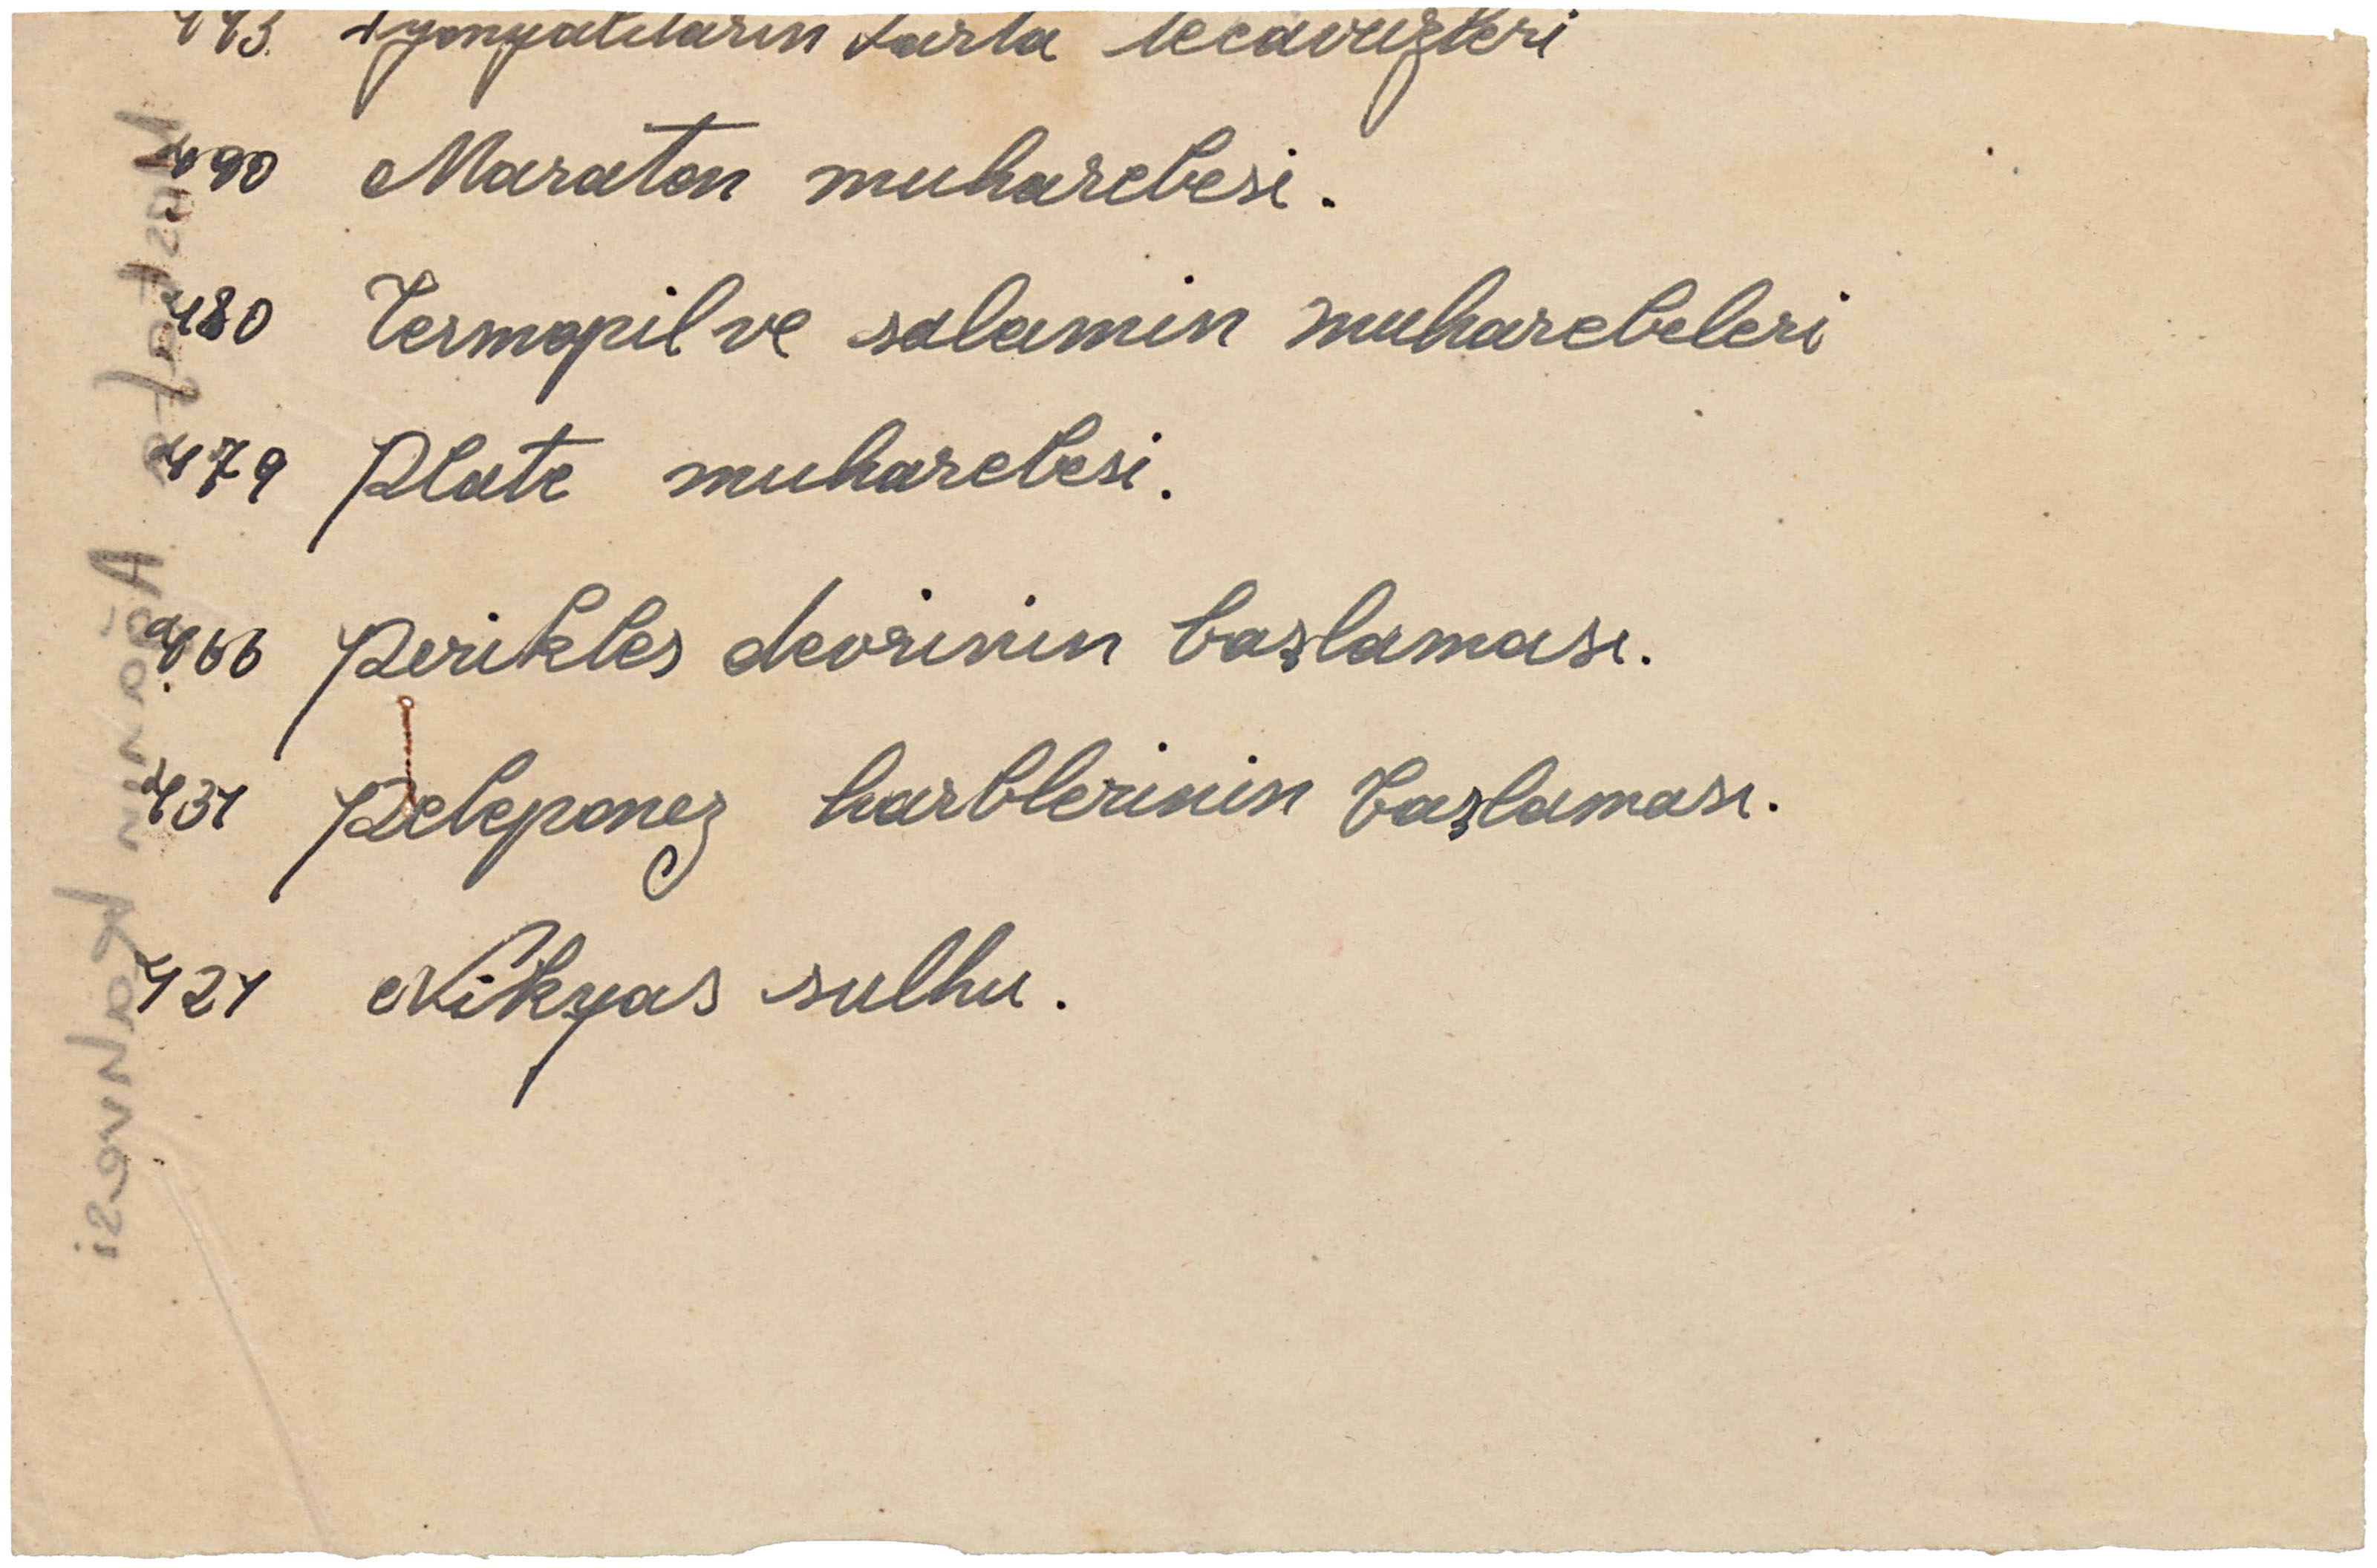 493. İyonyalıların Sarta tecavüzleri
490 Maraton muharebesi.
480 Termopil ve salamin muharebeleri
479 Plate muharebesi.
466 Perikles devrinin başlaması.
431 Peleponez harblerinin başlaması.
421 Nikyas sulhu.
Mustafa Ağanin Kahvesi